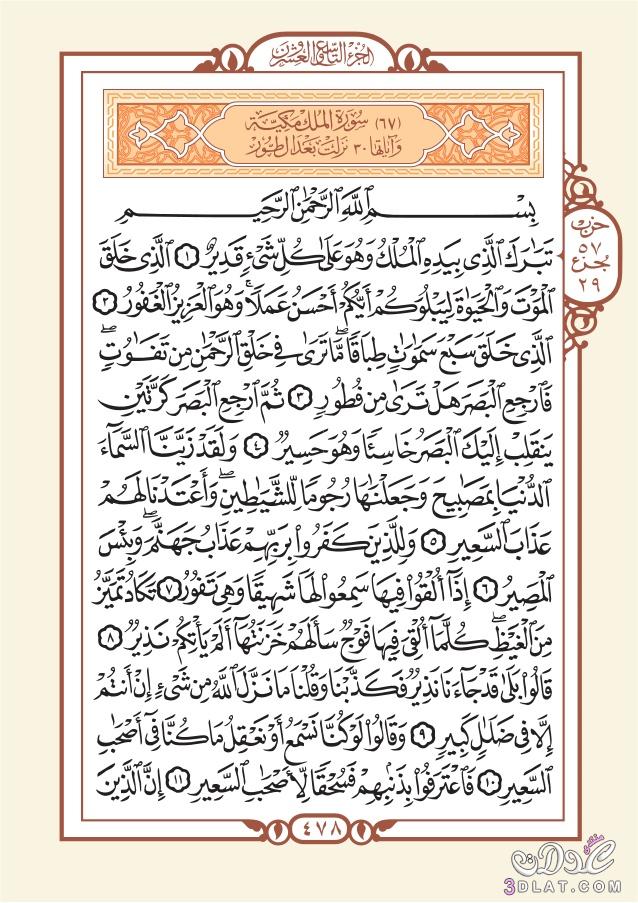 الجزء التاسع والعشرون
(٦٧) سورة الملك مكية
وآياتها ٣٠ نزلت بعد الطور
حزب
٥٧
جزء
٢٩
بِسْمِ اللَّهِ الرَّحْمَٰنِ الرَّحِيمِ
تَبَارَكَ الَّذِي بِيَدِهِ الْمُلْكُ وَهُوَ عَلَىٰ كُلِّ شَيْءٍ قَدِيرٌ ١ الَّذِي خَلَقَ
الْمَوْتَ وَالْحَيَاةَ لِيَبْلُوَكُمْ أَيُّكُمْ أَحْسَنُ عَمَلًا ۚ وَهُوَ الْعَزِيزُ الْغَفُورُ ٢
الَّذِي خَلَقَ سَبْعَ سَمَاوَاتٍ طِبَاقًا ۖ مَّا تَرَىٰ فِي خَلْقِ الرَّحْمَٰنِ مِن تَفَاوُتٍ ۖ
فَارْجِعِ الْبَصَرَ هَلْ تَرَىٰ مِن فُطُورٍ ٣ ثُمَّ ارْجِعِ الْبَصَرَ كَرَّتَيْنِ
يَنقَلِبْ إِلَيْكَ الْبَصَرُ خَاسِئًا وَهُوَ حَسِيرٌ ٤ وَلَقَدْ زَيَّنَّا السَّمَاءَ
الدُّنْيَا بِمَصَابِيحَ وَجَعَلْنَاهَا رُجُومًا لِّلشَّيَاطِينِ ۖ وَأَعْتَدْنَا لَهُمْ
عَذَابَ السَّعِيرِ ٥ وَلِلَّذِينَ كَفَرُوا بِرَبِّهِمْ عَذَابُ جَهَنَّمَ ۖ وَبِئْسَ
الْمَصِيرُ ٦ إِذَا أُلْقُوا فِيهَا سَمِعُوا لَهَا شَهِيقًا وَهِيَ تَفُورُ ٧ تَكَادُ تَمَيَّزُ
مِنَ الْغَيْظِ ۖ كُلَّمَا أُلْقِيَ فِيهَا فَوْجٌ سَأَلَهُمْ خَزَنَتُهَا أَلَمْ يَأْتِكُمْ نَذِيرٌ ٨
قَالُوا بَلَىٰ قَدْ جَاءَنَا نَذِيرٌ فَكَذَّبْنَا وَقُلْنَا مَا نَزَّلَ اللَّهُ مِن شَيْءٍ إِنْ أَنتُمْ
إِلَّا فِي ضَلَالٍ كَبِيرٍ ٩ وَقَالُوا لَوْ كُنَّا نَسْمَعُ أَوْ نَعْقِلُ مَا كُنَّا فِي أَصْحَابِ
السَّعِيرِ ١٠ فَاعْتَرَفُوا بِذَنبِهِمْ فَسُحْقًا لِّأَصْحَابِ السَّعِيرِ ١١ إِنَّ الَّذِينَ
٤٧٨
منتدى
عدلات
3DLAT.COM